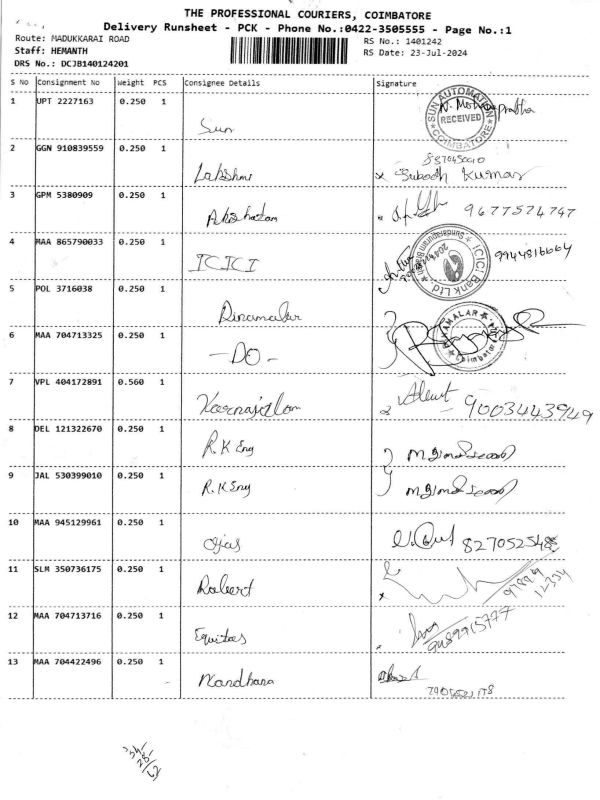 THE PROFESSIONAL COURIERS, COIMBATORE
Delivery Runsheet - PCK - Phone No.:0422-3505555 - Page No.:1
Route: MADUKKARAI ROAD
RS No.: 1401242
Staff: HEMANTH
RS Date: 23-Jul-2024
DRS No.: DCJB140124201
S No Consignment No Weight PCS Consignee Details Signature
1 UPT 2227163 0.250 1 Sun
SUN AUTOMATION RECEIVED COIMBATORE
2 GGN 910839559 0.250 1 Lakshmi Subodh Kumar
3 GPM 5380909 0.250 1 Akshatam 9677574747
4 MAA 865790033 0.250 1 ICICI ICICI Bank Ltd. 9944816664
5 POL 3716038 0.250 1 Dinamalar
6 MAA 704713325 0.250 1 -DO-
Coimbatore
7 VPL 404172891 0.560 1 9003443949
8 DEL 121322670 0.250 1 R.K Eng
9 JAL 530399010 0.250 1 R.K Eng
10 MAA 945129961 0.250 1 Ojas
11 SLM 350736175 0.250 1 Robert
12 MAA 704713716 0.250 1 Equitas 9489915777
13 MAA 704422496 0.250 1 Mandhana